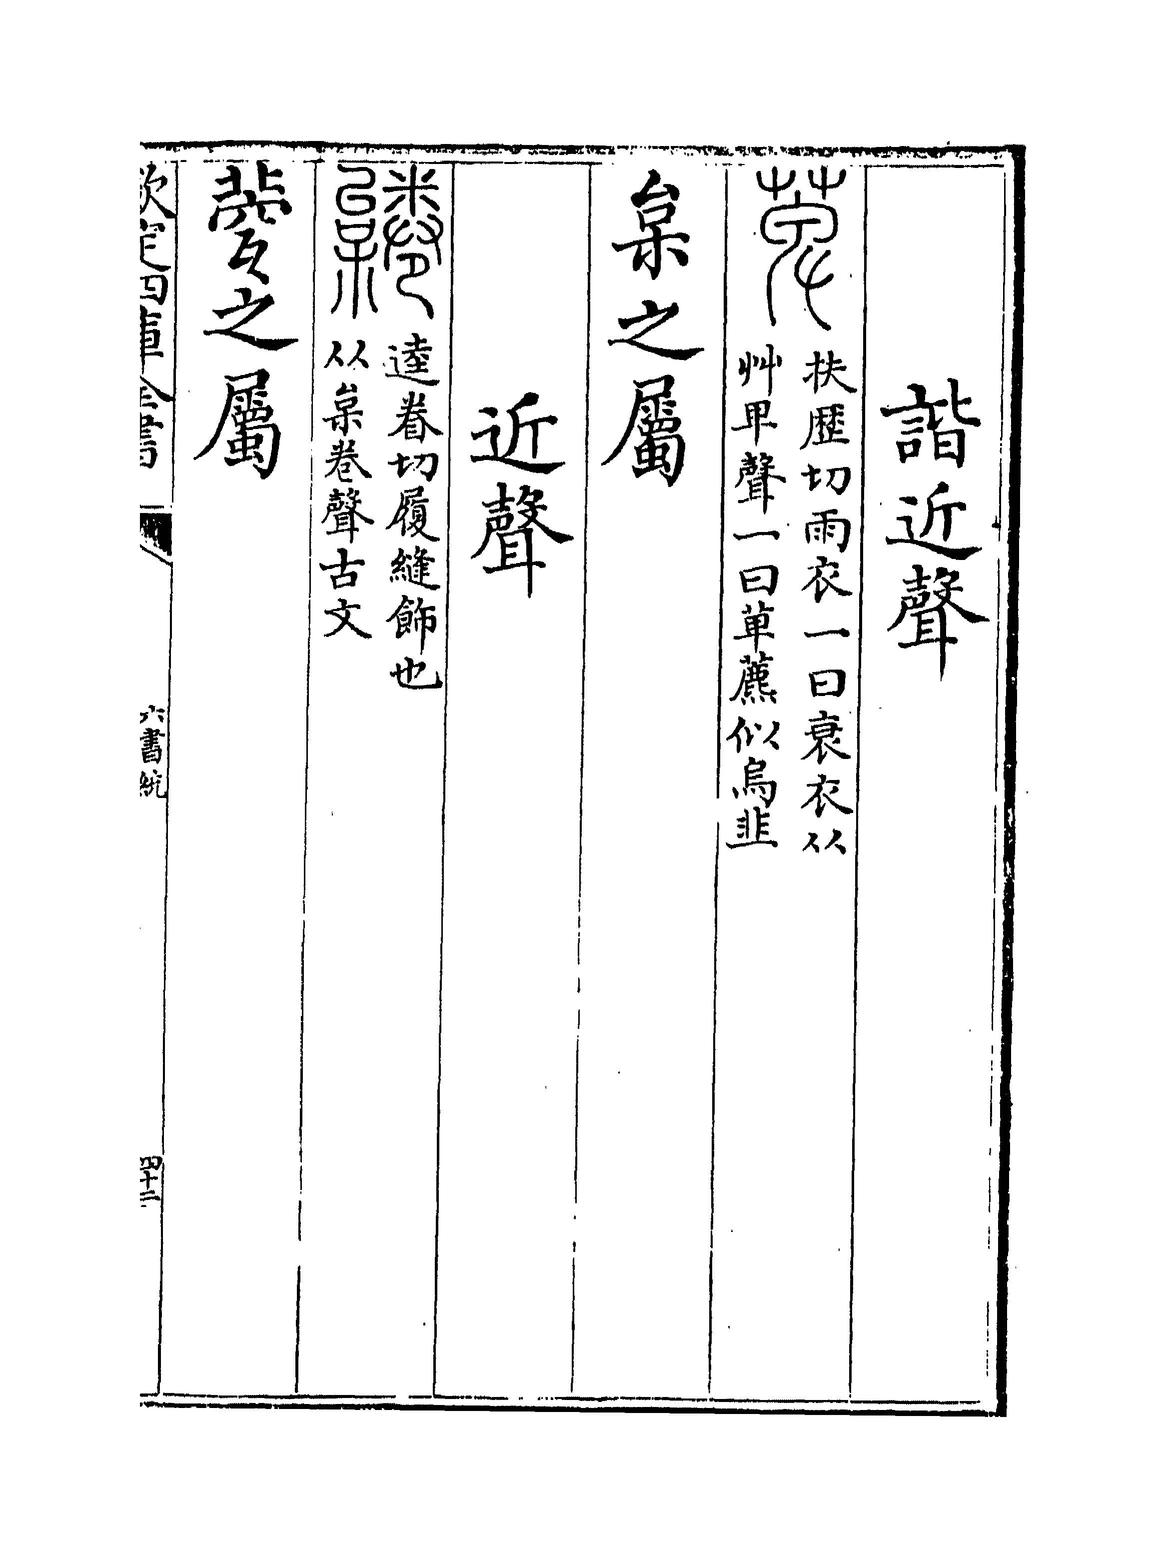 諧近聲
扶歷切雨衣一曰衰衣从
艸甲聲一曰萆藨似烏韭
枲之屬
近聲
逵眷切履縫飾也
从枲卷聲古文
㼱之屬
欽定四庫全書
六書統
四十二